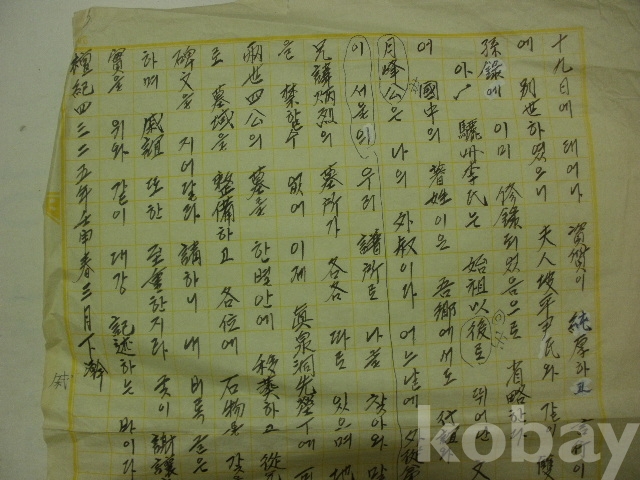 十九日에 태어나 資質이 純厚하고
에 別世하였으니 夫人坡平尹氏와 같이 雙
孫錄에 이미 修錄되었음으로 省略한다
아 驪州李氏는 始祖以後로 뛰어난
어 國中의 著姓이은 吾鄕에서도 代
月峰公은 나의 外叔이라 어느날에 外從
이 서운의 우리 譜所로 나를 찾아와 말
兄諱炳烈의 墓所가 各各 따로 있으며 地
을 禁할수 없어 이제 眞泉洞先塋下에
兩世四公의 墓를 한벌안에 移葬하고 從
로 墓域을 整備하고 各位에 石物을 갖
碑文을 지어달라 請하니 내 비록 글은
하며 戚誼 또한 至重한지라 굿이 謝讓
實을 위와 같이 대강 記述하는 바이다
檀紀四三二五年壬申春三月下澣
kobay